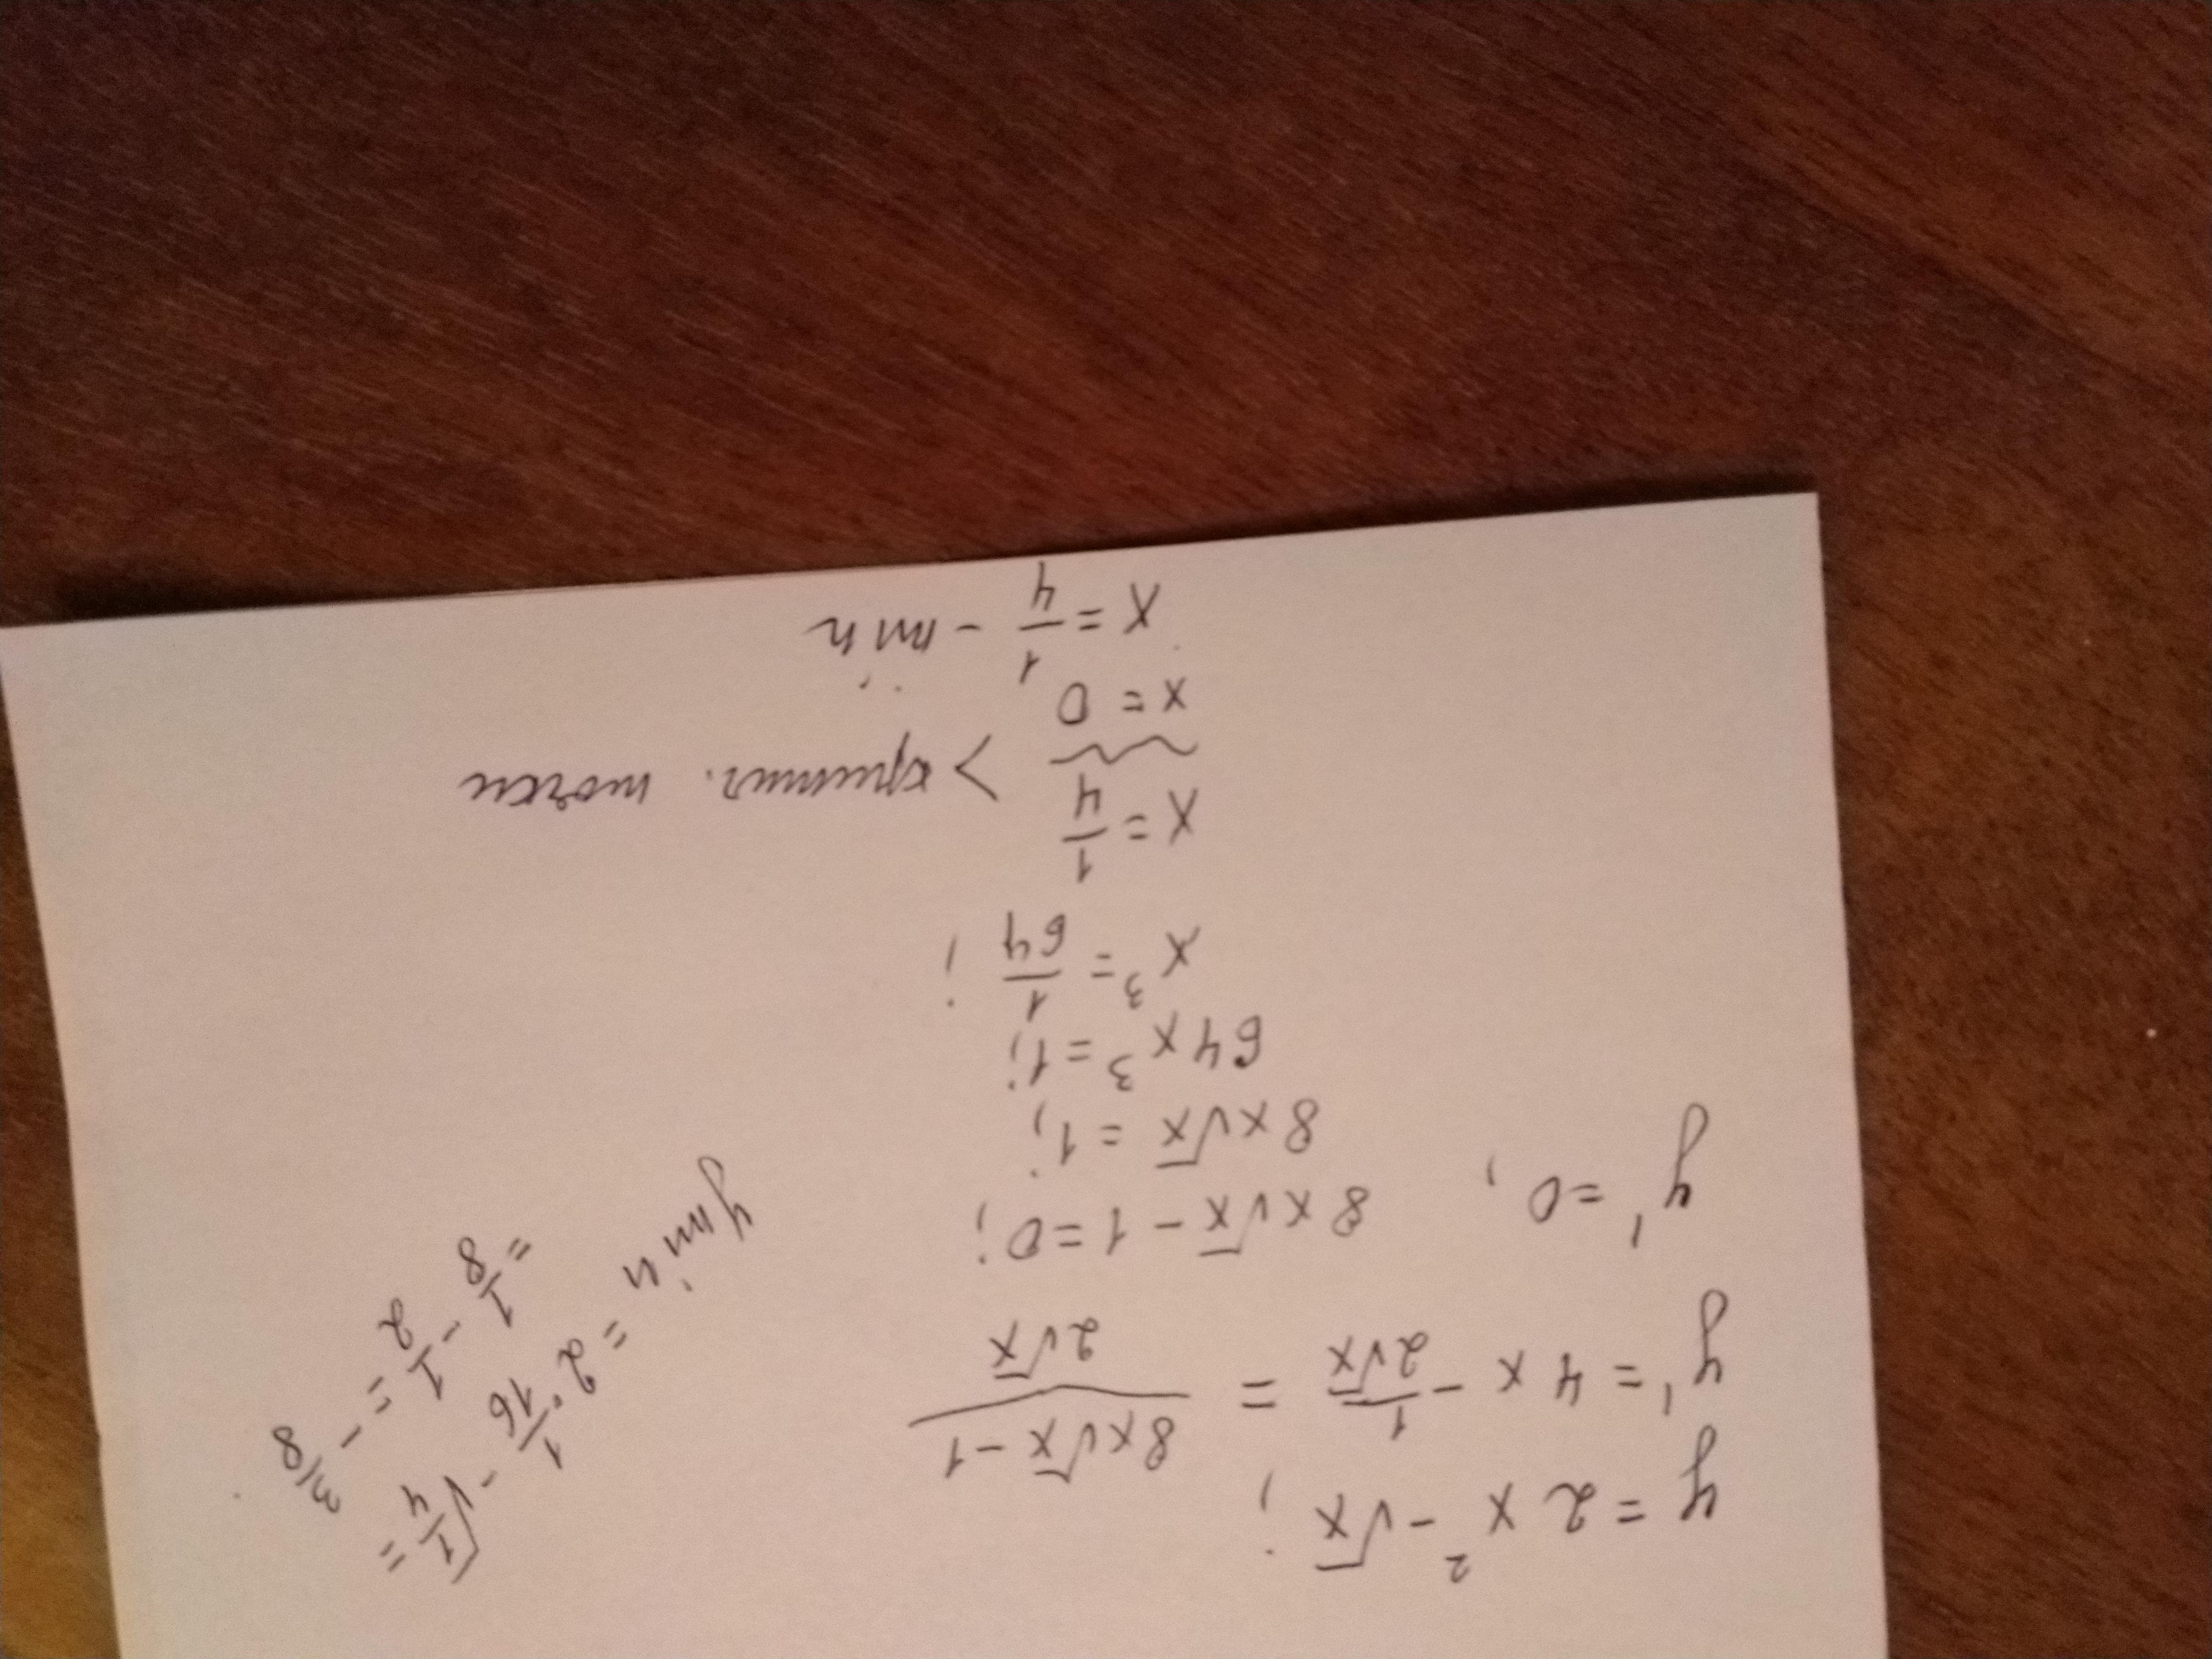 y = 2x² - √x ;
y' = 4x - 1/(2√x) = (8x√x - 1)/(2√x)
y' = 0, 8x√x - 1 = 0;
8x√x = 1;
64x³ = 1;
x³ = 1/64 ;
x = 1/4
x = 0 > критич. точки
x = 1/4 - min
ymin = 2·1/16 - √(1/4) =
= 1/8 - 1/2 = - 3/8